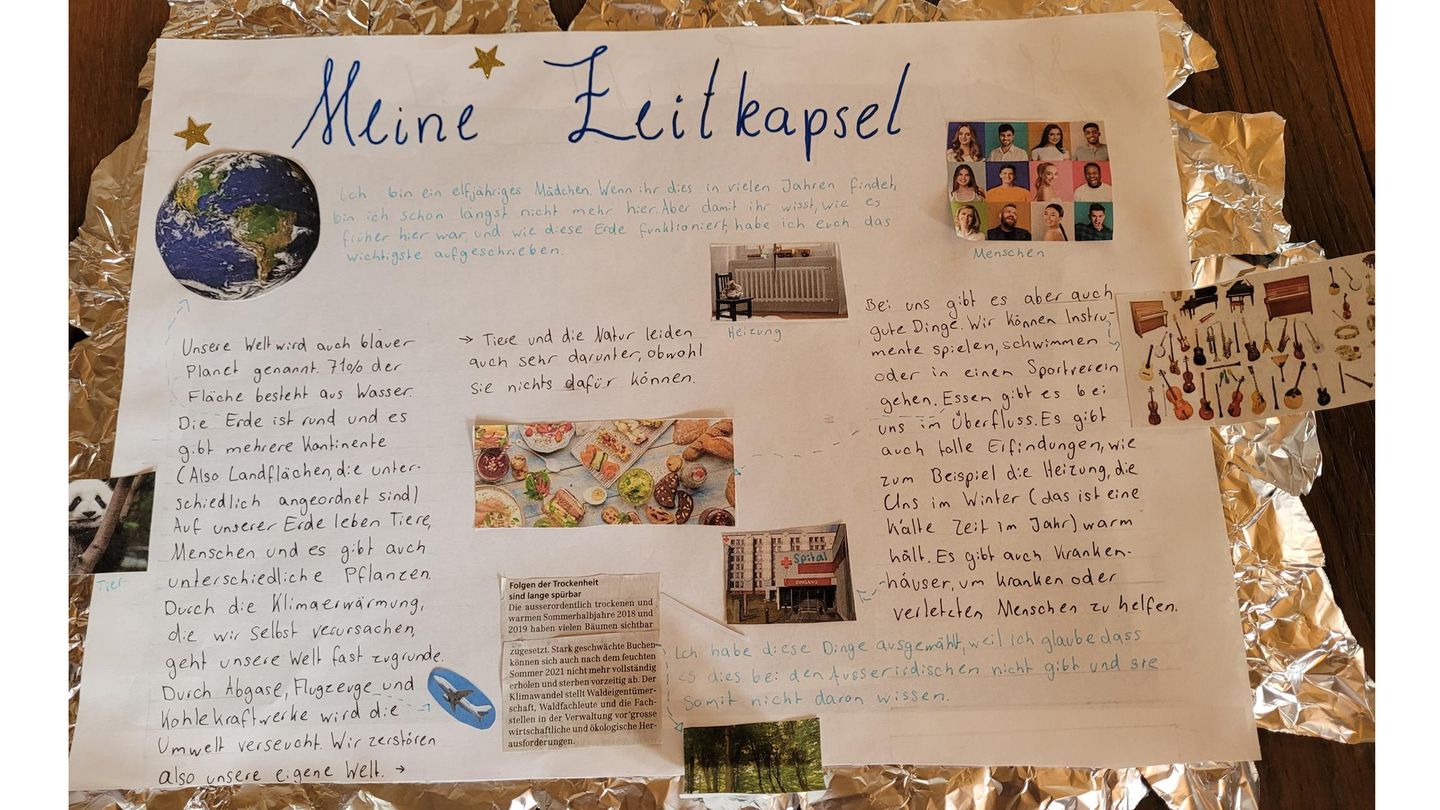 Meine Zeitkapsel
Ich bin ein elfjähriges Mädchen. Wenn ihr dies in vielen Jahren findet,
bin ich schon längst nicht mehr hier. Aber damit ihr wisst, wie es
früher hier war, und wie diese Erde funktioniert, habe ich euch das
wichtigste aufgeschrieben.
Menschen
Heizung
Unsere Welt wird auch blauer
Planet genannt. 71% der
Fläche besteht aus Wasser.
Die Erde ist rund und es
gibt mehrere Kontinente
(Also Landflächen, die unter-
schiedlich angeordnet sind)
Auf unserer Erde leben Tiere,
Menschen und es gibt auch
unterschiedliche Pflanzen.
Durch die Klimaerwärmung,
die wir selbst verursachen,
geht unsere Welt fast zugrunde.
Durch Abgase, Flugzeuge und
Kohlekraftwerke wird die
Umwelt verseucht. Wir zerstören
also unsere eigene Welt. →
Tier
→ Tiere und die Natur leiden
auch sehr darunter, obwohl
sie nichts dafür können.
Folgen der Trockenheit
sind lange spürbar
Die ausserordentlich trockenen und
warmen Sommerhalbjahre 2018 und
2019 haben vielen Bäumen sichtbar
zugesetzt. Stark geschwächte Buchen
können sich auch nach dem feuchten
Sommer 2021 nicht mehr vollständig
erholen und sterben vorzeitig ab. Der
Klimawandel stellt Waldeigentümer-
schaft, Waldfachleute und die Fach-
stellen in der Verwaltung vor grosse
wirtschaftliche und ökologische Her-
ausforderungen.
Bei uns gibt es aber auch
gute Dinge. Wir können Instru-
mente spielen, schwimmen
oder in einen Sportverein
gehen. Essen gibt es bei
uns im Überfluss. Es gibt
auch tolle Erfindungen, wie
zum Beispiel die Heizung, die
Uns im Winter (das ist eine
kalte Zeit im Jahr) warm
hält. Es gibt auch Kranken-
häuser, um kranken oder
verletzten Menschen zu helfen.
Spital
EINGANG
Ich habe diese Dinge ausgewählt, weil ich glaube dass
es dies bei den Ausserirdischen nicht gibt und sie
somit nicht davon wissen.